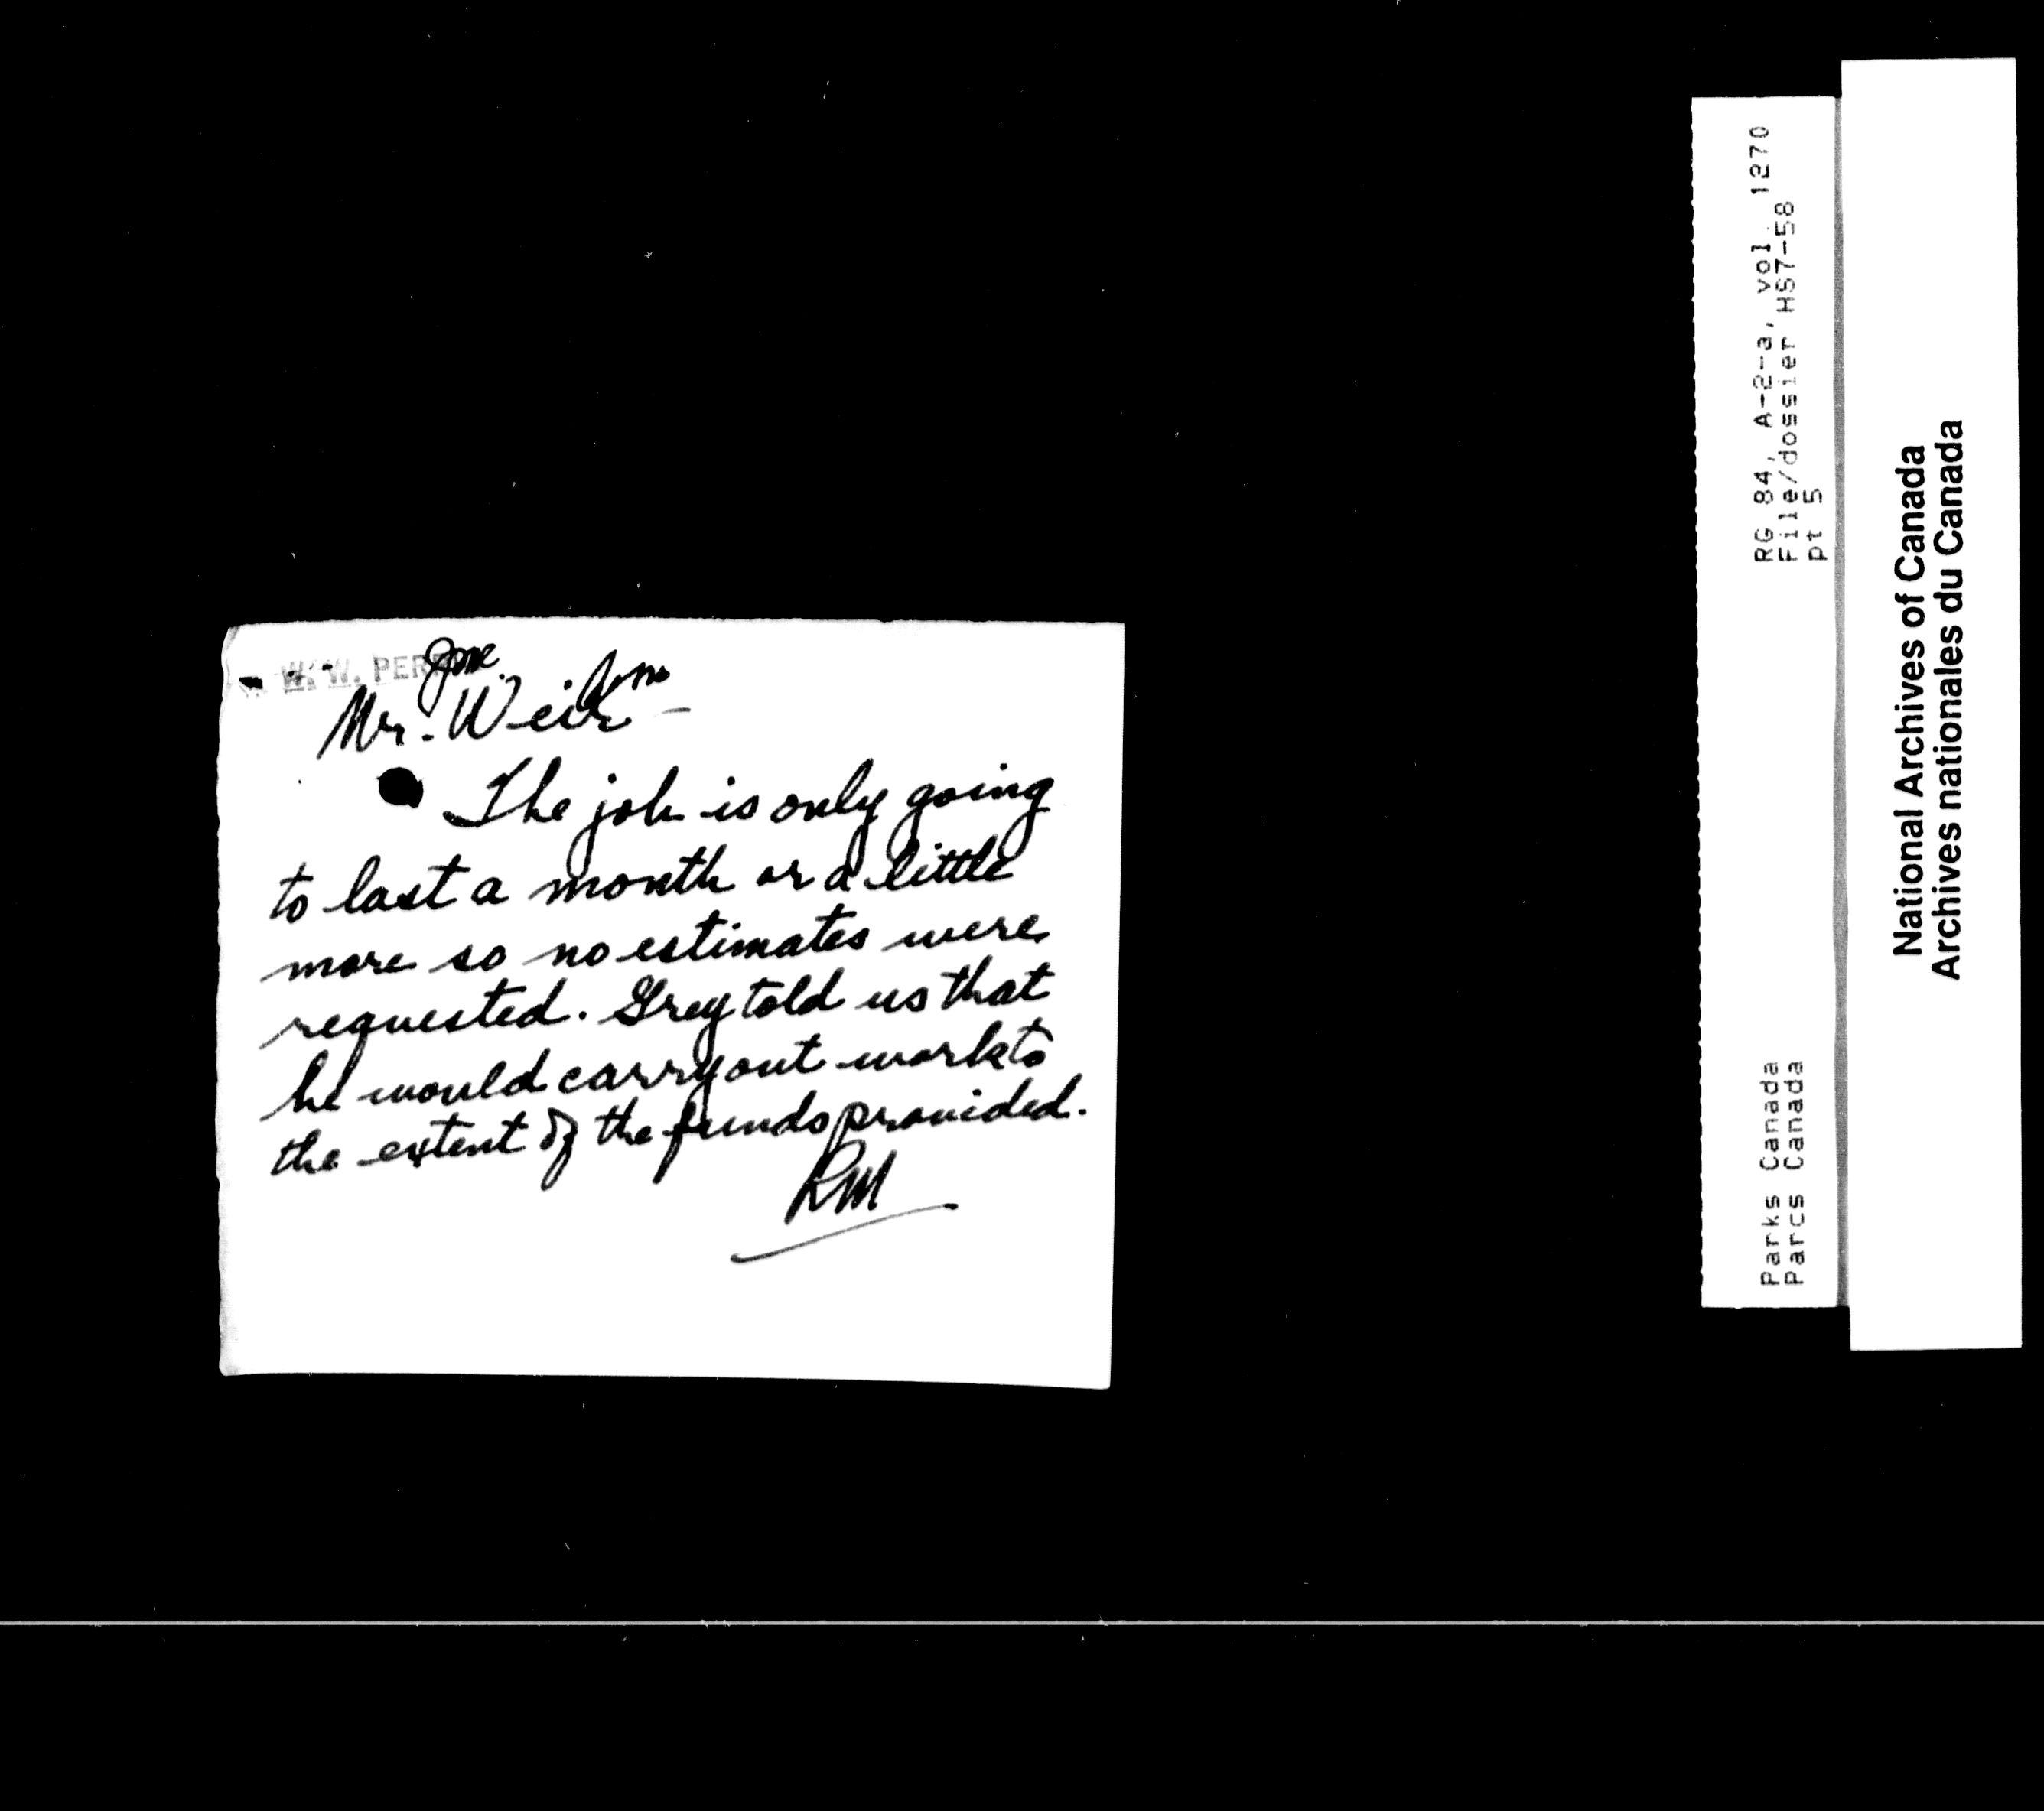 W. W. PER
Mr. Weir –
The job is only going
to last a month or a little
more so no estimates were
requested. Grey told us that
he would carry out work to
the extent of the funds provided.
RM
RG 84, A-2-a, vol. 1270
File/dossier HS7-58
pt 5
Parks Canada
Parcs Canada
National Archives of Canada
Archives nationales du Canada